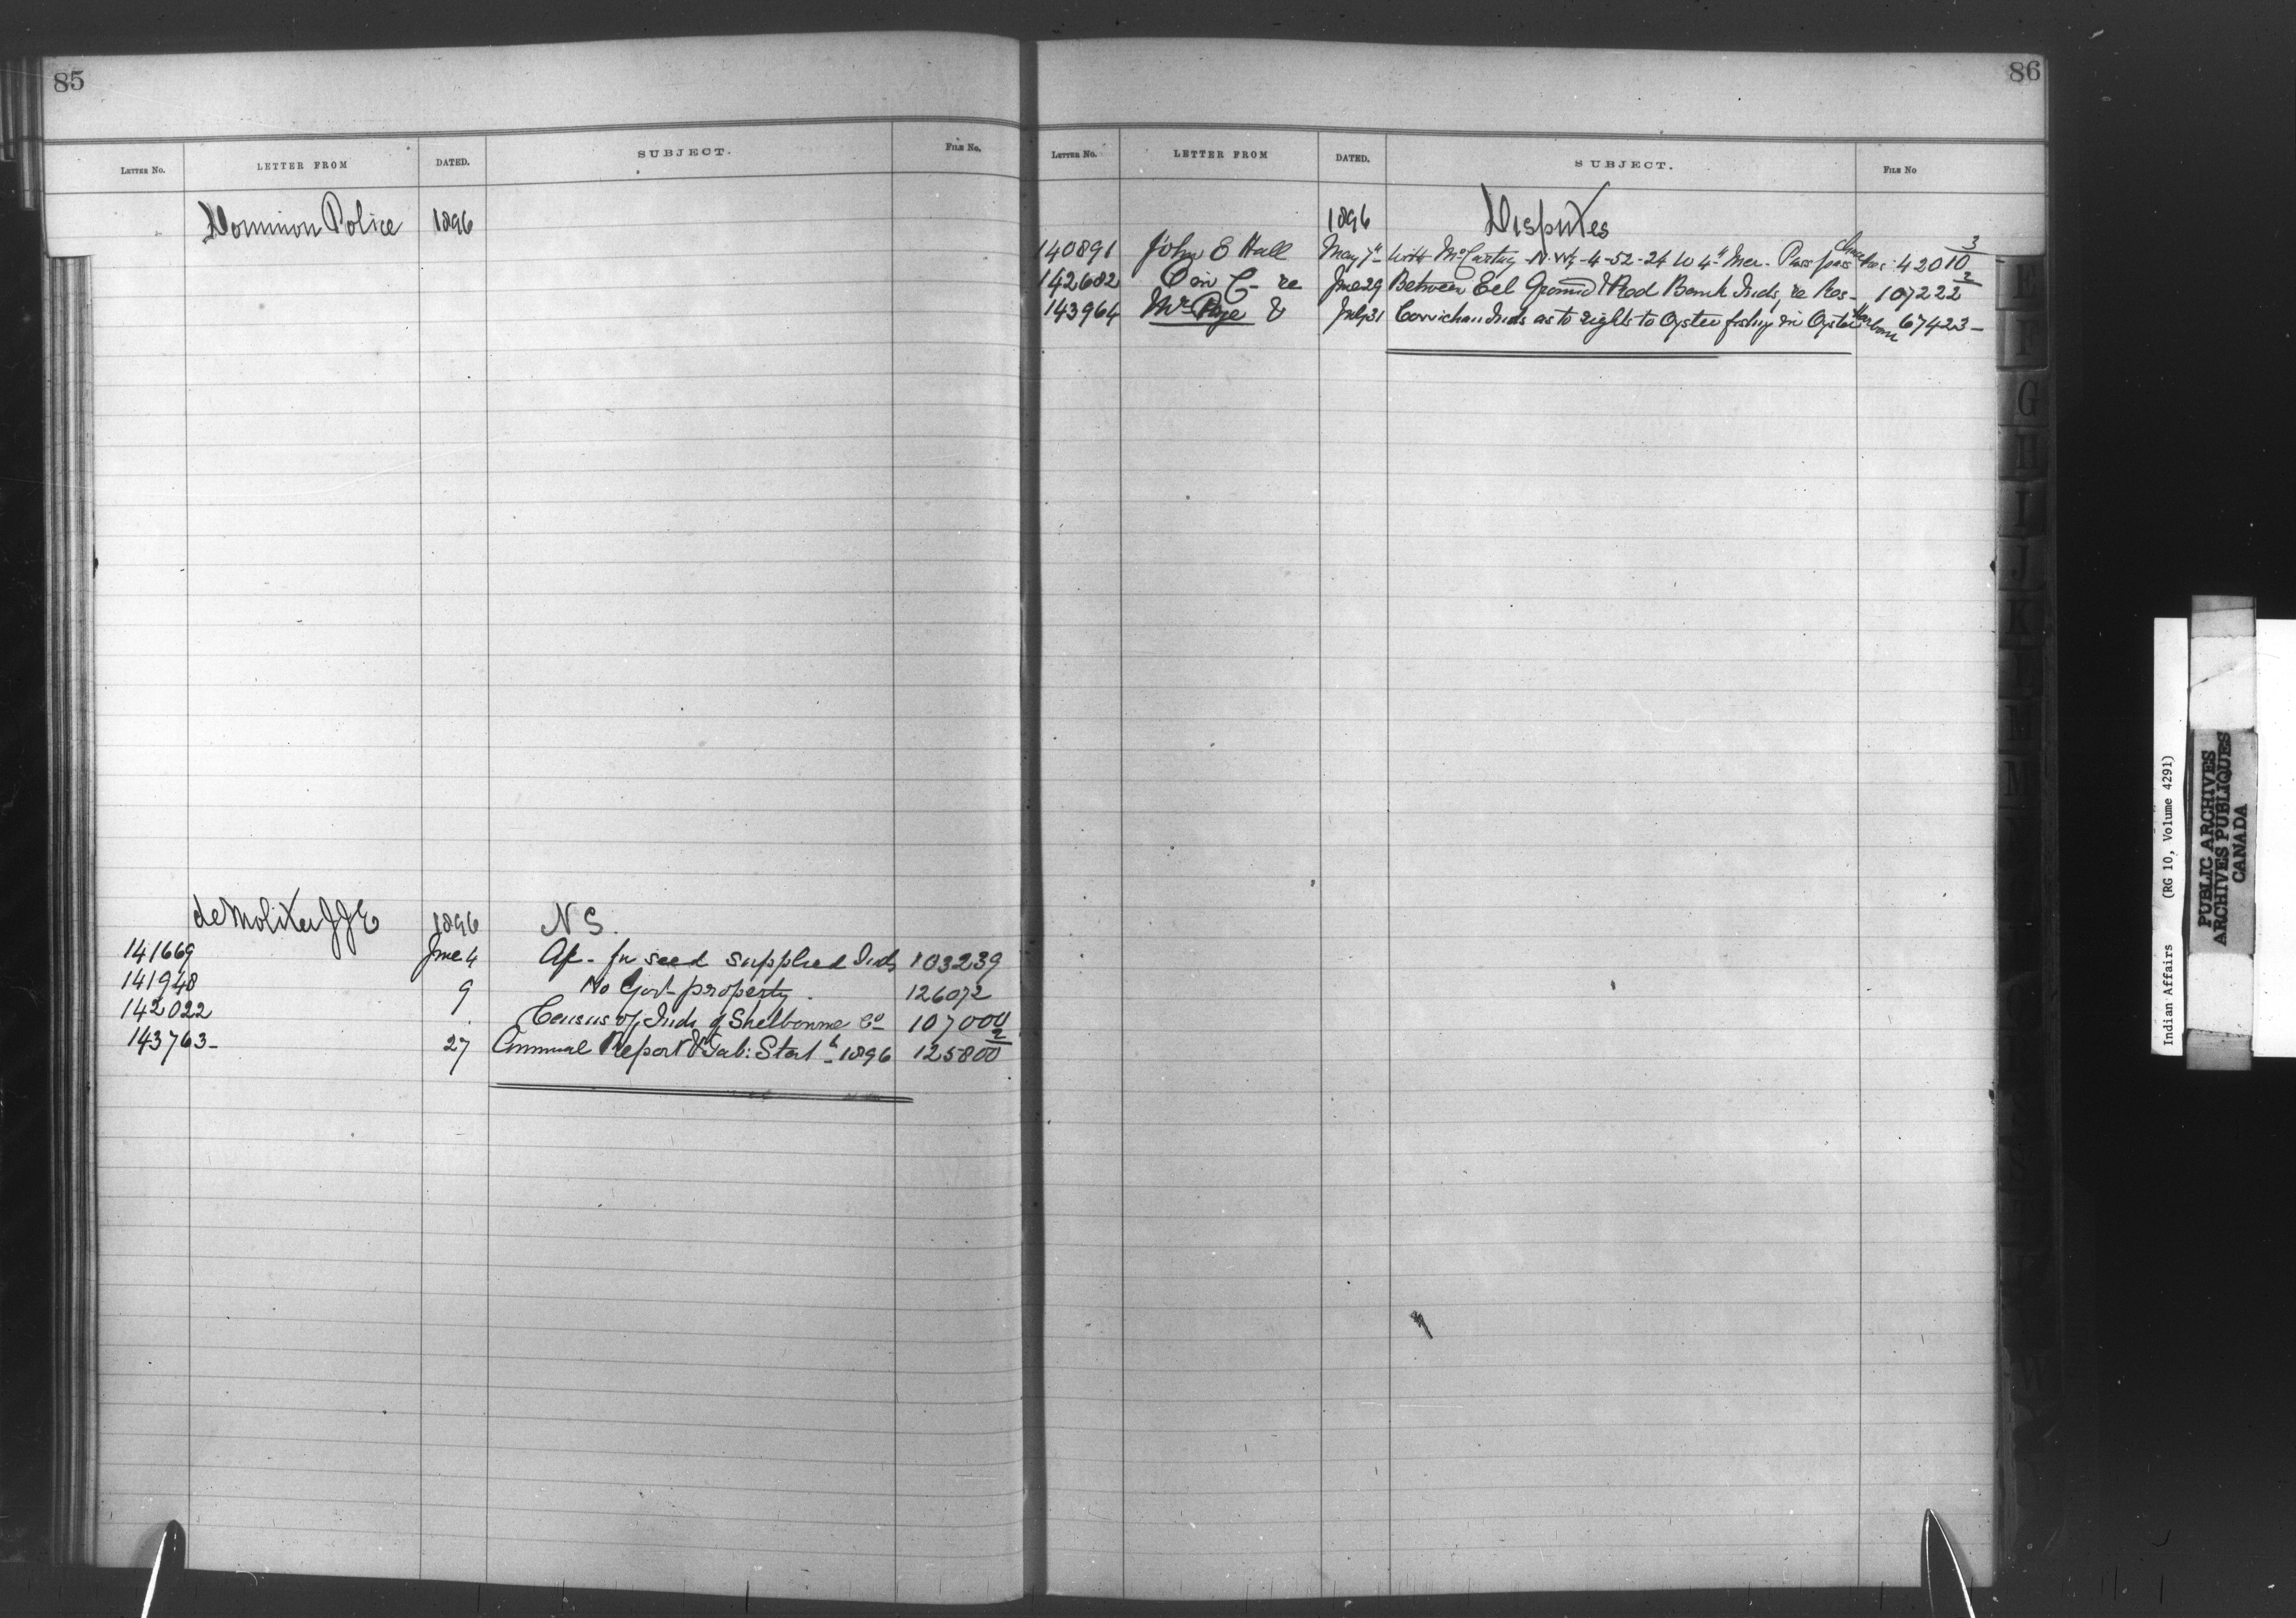 85
LETTER No. LETTER FROM DATED. SUBJECT. FILE No.
Dominion Police 1896
deMolitor J J E 1896 N S.
141669 June 4 A/c - for seed supplied Inds 103239
141948 9 No Govt property. 126072
142022 Census of Inds of Shelbourne Co 107000
143763- 27 Annual Report & Tab: Stat 1896 125800 2
86
LETTER No. LETTER FROM DATED. SUBJECT. FILE No
1896 Disputes
140891 John E Hall May 7th With McCarthy - N.W¼-4-52-24 W 4th Mer. 42010 3
142682 re June 29 Between Eel Ground & Red Bank Inds, re Res- 107222 2
143964 Mr & July 31 Cowichan Inds as to rights to Oyster fishing in Oyster Harbour 67423-
E
F
G
H
I
J
K
L
M
Indian Affairs (RG 10, Volume 4291)
PUBLIC ARCHIVES
ARCHIVES PUBLIQUES
CANADA